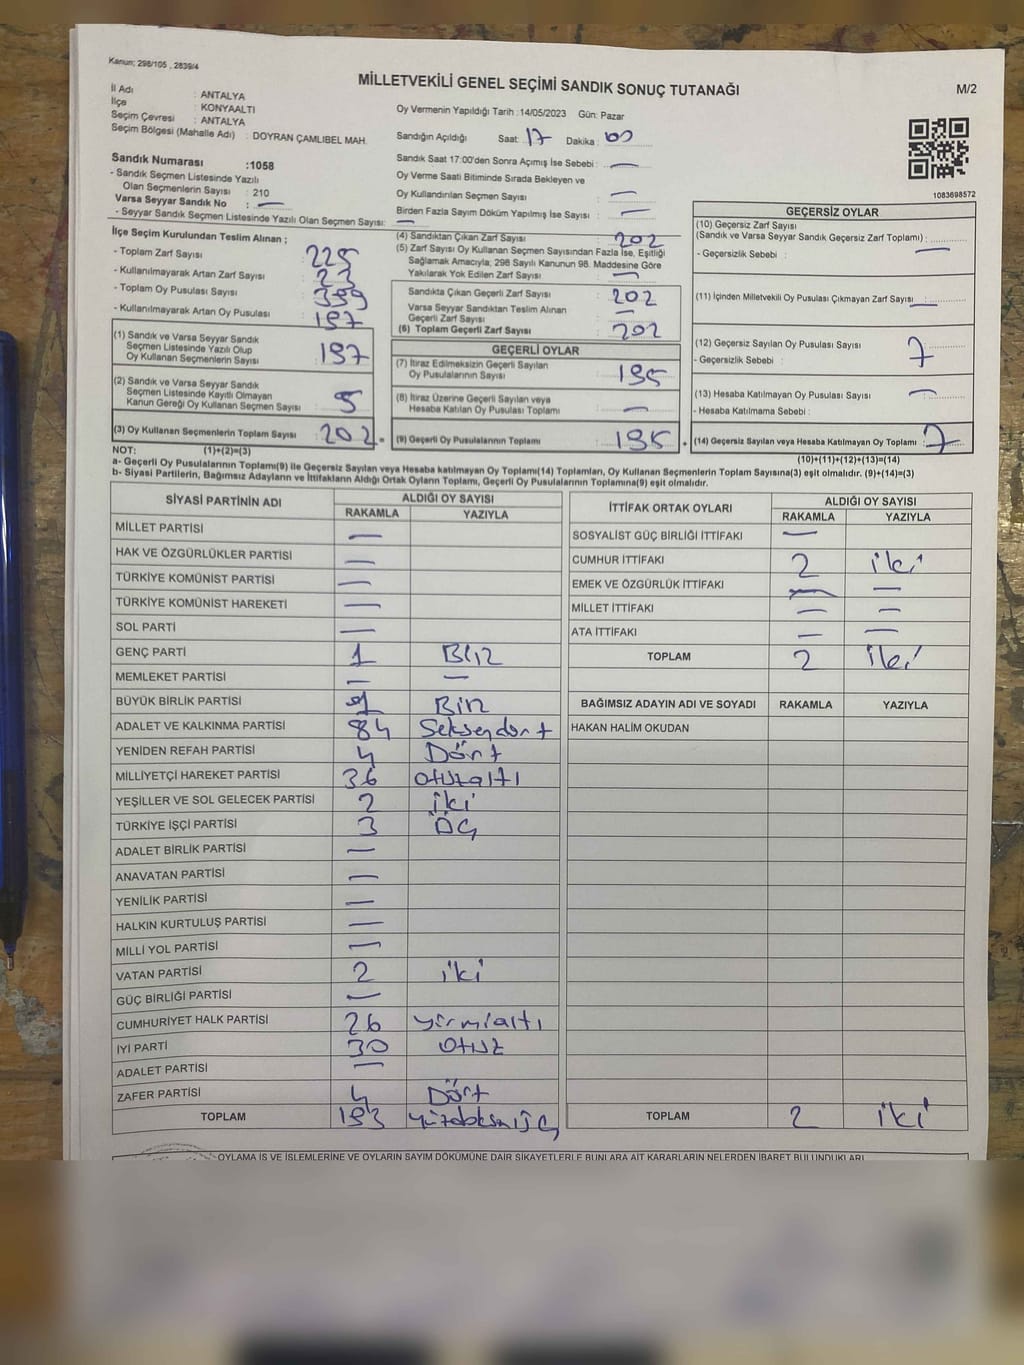 Kanun; 298/105 , 2839/4
MİLLETVEKİLİ GENEL SEÇİMİ SANDIK SONUÇ TUTANAĞI
M/2
İl Adı : ANTALYA
İlçe : KONYAALTI
Seçim Çevresi : ANTALYA
Seçim Bölgesi (Mahalle Adı) : DOYRAN ÇAMLIBEL MAH.
Sandık Numarası :1058
- Sandık Seçmen Listesinde Yazılı
Olan Seçmenlerin Sayısı : 210
Varsa Seyyar Sandık No : —
- Seyyar Sandık Seçmen Listesinde Yazılı Olan Seçmen Sayısı: —
Oy Vermenin Yapıldığı Tarih :14/05/2023 Gün: Pazar
Sandığın Açıldığı Saat: 17 Dakika : 00
Sandık Saat 17:00'den Sonra Açımış İse Sebebi : —
Oy Verme Saati Bitiminde Sırada Bekleyen ve
Oy Kullandırılan Seçmen Sayısı : —
Birden Fazla Sayım Döküm Yapılmış İse Sayısı : —
1083698572
İlçe Seçim Kurulundan Teslim Alınan ;
- Toplam Zarf Sayısı : 225
- Kullanılmayarak Artan Zarf Sayısı : 23
- Toplam Oy Pusulası Sayısı : 399
- Kullanılmayarak Artan Oy Pusulası : 197
(1) Sandık ve Varsa Seyyar Sandık
Seçmen Listesinde Yazılı Olup
Oy Kullanan Seçmenlerin Sayısı : 197
(2) Sandık ve Varsa Seyyar Sandık
Seçmen Listesinde Kayıtlı Olmayan
Kanun Gereği Oy Kullanan Seçmen Sayısı : 5
(3) Oy Kullanan Seçmenlerin Toplam Sayısı : 202 =
(4) Sandıktan Çıkan Zarf Sayısı : 202
(5) Zarf Sayısı Oy Kullanan Seçmen Sayısından Fazla İse, Eşitliği
Sağlamak Amacıyla; 298 Sayılı Kanunun 98. Maddesine Göre
Yakılarak Yok Edilen Zarf Sayısı : —
Sandıkta Çıkan Geçerli Zarf Sayısı : 202
Varsa Seyyar Sandıktan Teslim Alınan
Geçerli Zarf Sayısı : —
(6) Toplam Geçerli Zarf Sayısı : 202
GEÇERLİ OYLAR
(7) İtiraz Edilmeksizin Geçerli Sayılan
Oy Pusulalarının Sayısı : 195
(8) İtiraz Üzerine Geçerli Sayılan veya
Hesaba Katılan Oy Pusulası Toplamı : —
(9) Geçerli Oy Pusulalarının Toplamı : 195 +
GEÇERSİZ OYLAR
(10) Geçersiz Zarf Sayısı
(Sandık ve Varsa Seyyar Sandık Geçersiz Zarf Toplamı) :
- Geçersizlik Sebebi : —
(11) İçinden Milletvekili Oy Pusulası Çıkmayan Zarf Sayısı : —
(12) Geçersiz Sayılan Oy Pusulası Sayısı : 7
- Geçersizlik Sebebi :
(13) Hesaba Katılmayan Oy Pusulası Sayısı : —
- Hesaba Katılmama Sebebi :
(14) Geçersiz Sayılan veya Hesaba Katılmayan Oy Toplamı : 7
NOT: (1)+(2)=(3)
(10)+(11)+(12)+(13)=(14)
a- Geçerli Oy Pusulalarının Toplamı(9) ile Geçersiz Sayılan veya Hesaba katılmayan Oy Toplamı(14) Toplamları, Oy Kullanan Seçmenlerin Toplam Sayısına(3) eşit olmalıdır. (9)+(14)=(3)
b- Siyasi Partilerin, Bağımsız Adayların ve İttifakların Aldığı Ortak Oyların Toplamı, Geçerli Oy Pusulalarının Toplamına(9) eşit olmalıdır.
SİYASİ PARTİNİN ADI ALDIĞI OY SAYISI
RAKAMLA YAZIYLA
MİLLET PARTİSİ —
HAK VE ÖZGÜRLÜKLER PARTİSİ —
TÜRKİYE KOMÜNİST PARTİSİ —
TÜRKİYE KOMÜNİST HAREKETİ —
SOL PARTİ —
GENÇ PARTİ 1 Bir
MEMLEKET PARTİSİ — —
BÜYÜK BİRLİK PARTİSİ 1 Bir
ADALET VE KALKINMA PARTİSİ 84 Seksendört
YENİDEN REFAH PARTİSİ 4 Dört
MİLLİYETÇİ HAREKET PARTİSİ 36 otuzaltı
YEŞİLLER VE SOL GELECEK PARTİSİ 2 iki
TÜRKİYE İŞÇİ PARTİSİ 3 ÜÇ
ADALET BİRLİK PARTİSİ —
ANAVATAN PARTİSİ —
YENİLİK PARTİSİ —
HALKIN KURTULUŞ PARTİSİ —
MİLLİ YOL PARTİSİ —
VATAN PARTİSİ 2 iki
GÜÇ BİRLİĞİ PARTİSİ —
CUMHURİYET HALK PARTİSİ 26 yirmialtı
İYİ PARTİ 30 otuz
ADALET PARTİSİ —
ZAFER PARTİSİ 4 Dört
TOPLAM 193
İTTİFAK ORTAK OYLARI ALDIĞI OY SAYISI
RAKAMLA YAZIYLA
SOSYALİST GÜÇ BİRLİĞİ İTTİFAKI —
CUMHUR İTTİFAKI 2 iki
EMEK VE ÖZGÜRLÜK İTTİFAKI — —
MİLLET İTTİFAKI — —
ATA İTTİFAKI — —
TOPLAM 2 iki
BAĞIMSIZ ADAYIN ADI VE SOYADI RAKAMLA YAZIYLA
HAKAN HALİM OKUDAN
TOPLAM 2 iki
OYLAMA İŞ VE İŞLEMLERİNE VE OYLARIN SAYIM DÖKÜMÜNE DAİR ŞİKAYETLERLE BUNLARA AİT KARARLARIN NELERDEN İBARET BULUNDUKLARI